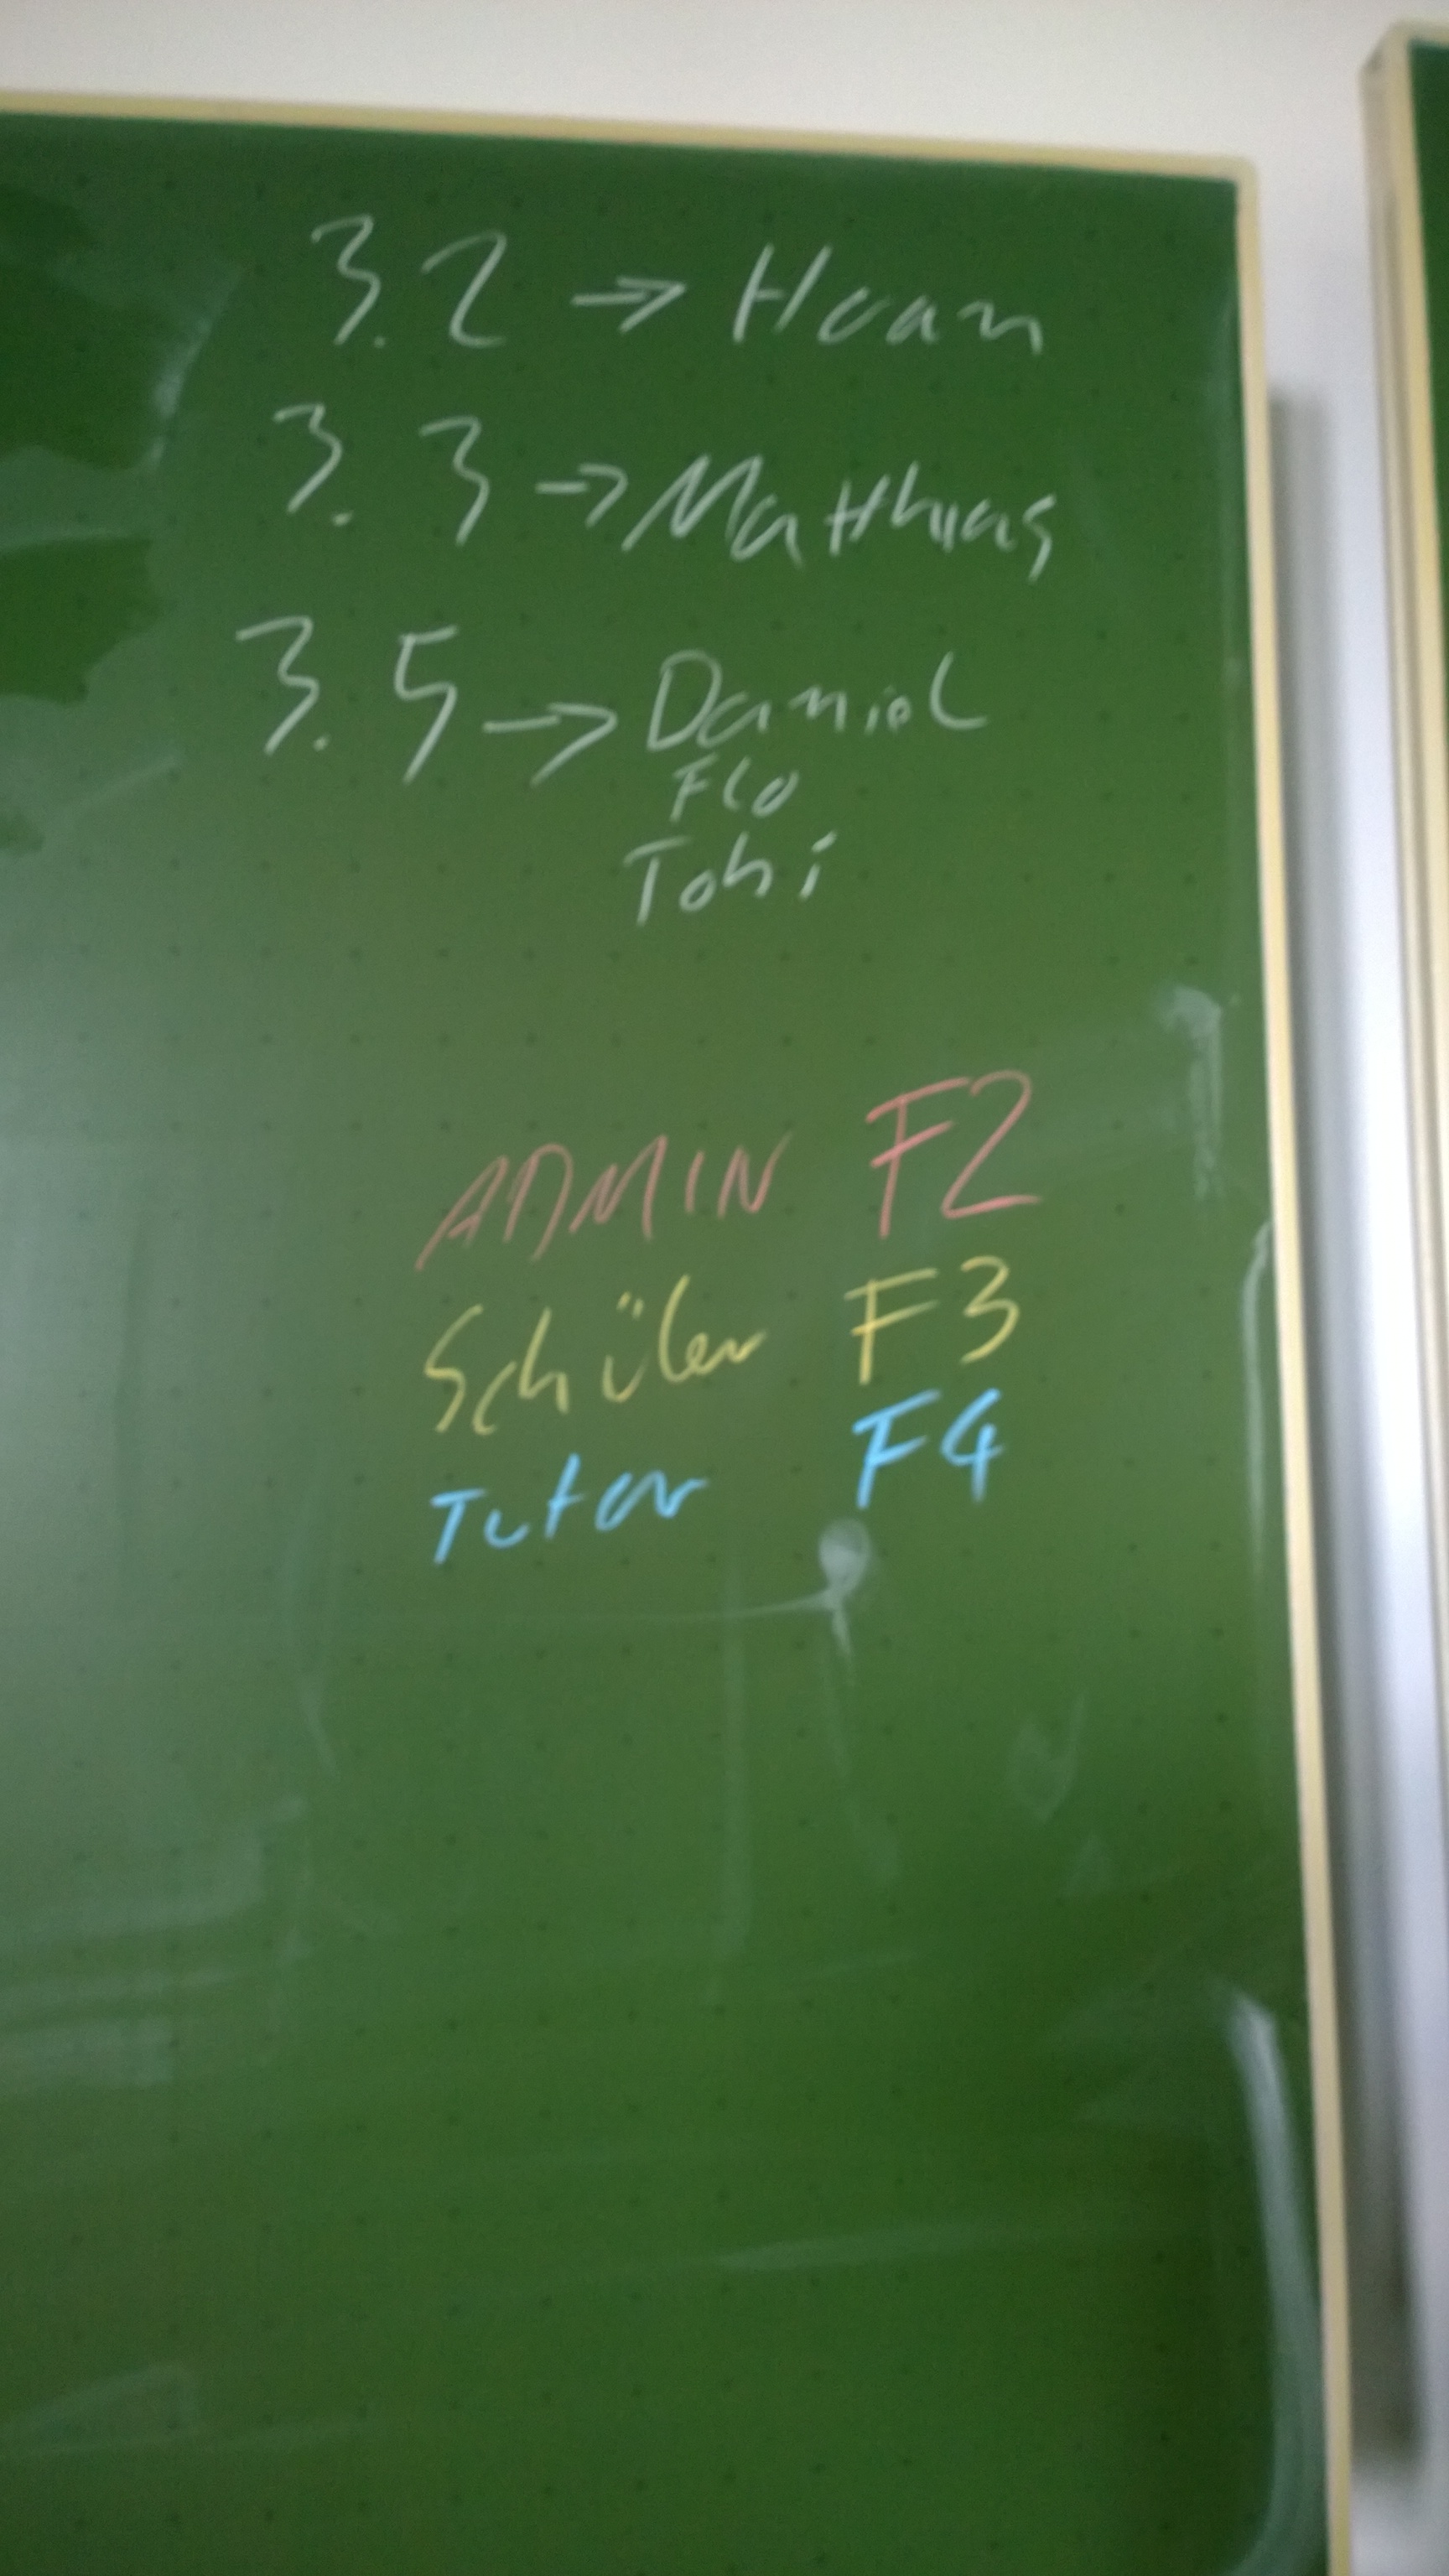 3.2 → Hoan
3.3 → Matthias
3.5 → Daniel
Flo
Tobi
ADMIN F2
Schüler F3
Tutor F4